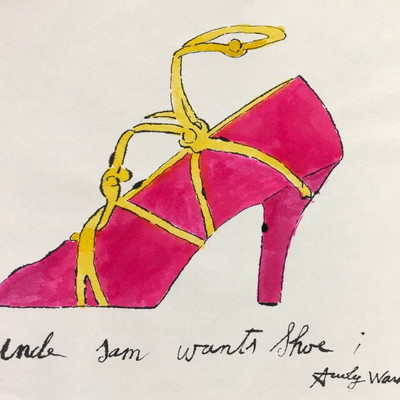 uncle sam wants Shoe !
Andy War